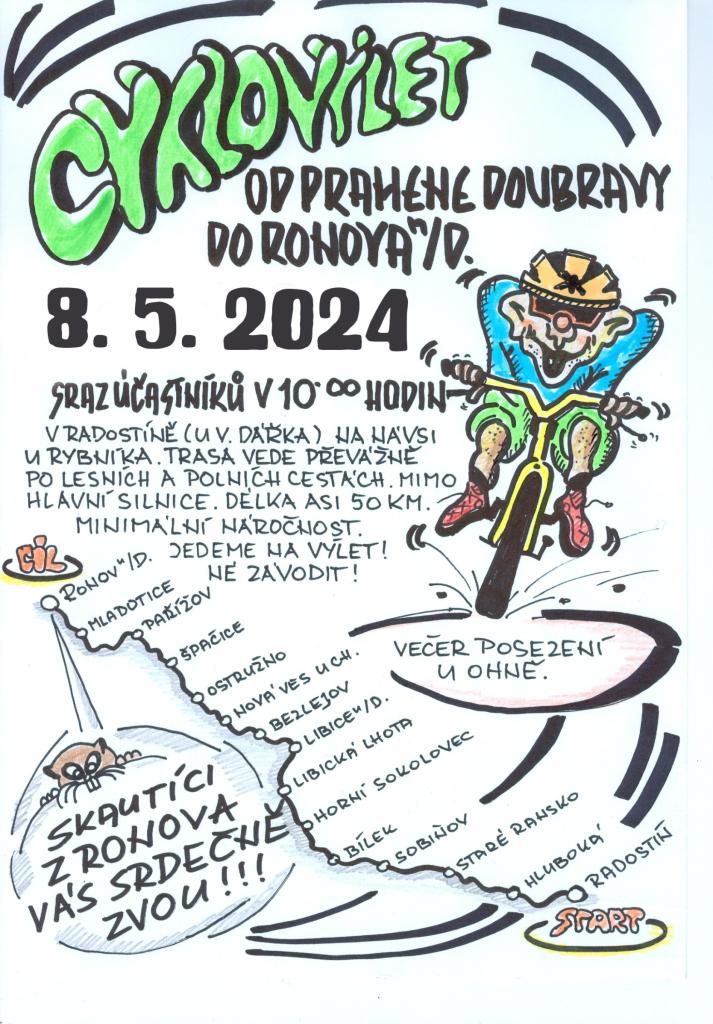 CYKLOVÝLET
OD PRAMENE DOUBRAVY
DO RONOVA N/D.
8. 5. 2024
SRAZ ÚČASTNÍKŮ V 10·00 HODIN
V RADOSTÍNĚ (U V. DÁŘKA) NA NÁVSI
U RYBNÍKA. TRASA VEDE PŘEVÁŽNĚ
PO LESNÍCH A POLNÍCH CESTÁCH. MIMO
HLAVNÍ SILNICE. DÉLKA ASI 50 KM.
MINIMÁLNÍ NÁROČNOST.
JEDEME NA VÝLET!
NE ZÁVODIT!
CÍL
RONOV N/D.
MLADOTICE
PAŘÍŽOV
ŠPAČICE
OSTRUŽNO
NOVÁ VES U CH.
BEZLEJOV
LIBICE N/D.
LIBICKÁ LHOTA
HORNÍ SOKOLOVEC
BÍLEK
SOBIŇOV
STARÉ RANSKO
HLUBOKÁ
RADOSTÍN
START
VEČER POSEZENÍ
U OHNĚ.
SKAUTÍCI
Z RONOVA
VÁS SRDEČNĚ
ZVOU!!!